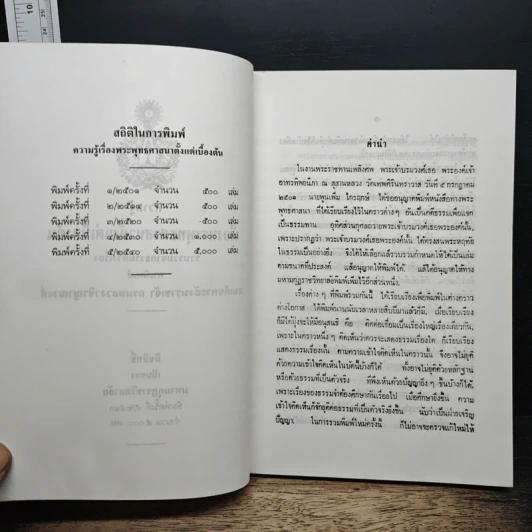 สถิติในการพิมพ์
ความรู้เรื่องพระพุทธศาสนาตั้งแต่เบื้องต้น
พิมพ์ครั้งที่ ๑/๒๕๐๑ จำนวน ๕๐๐ เล่ม
พิมพ์ครั้งที่ ๒/๒๕๑๔ จำนวน ๕๐๐ เล่ม
พิมพ์ครั้งที่ ๓/๒๕๒๐ จำนวน ๕๐๐ เล่ม
พิมพ์ครั้งที่ ๔/๒๕๓๐ จำนวน ๑,๐๐๐ เล่ม
พิมพ์ครั้งที่ ๕/๒๕๔๐ จำนวน ๕,๐๐๐ เล่ม
คำนำ
ในงานพระราชทานเพลิงศพ พระเจ้าบรมวงศ์เธอ พระองค์เจ้า
อาทรทิพยนิภา ณ สุสานหลวง วัดเทพศิรินทราวาส วันที่ ๕ กรกฎาคม
๒๕๐๑ นายพูนเพิ่ม ไกรฤกษ์ ได้ขออนุญาตพิมพ์หนังสือทางพระ
พุทธศาสนา ที่ได้เรียบเรียงไว้ในคราวต่างๆ อันเป็นคติธรรมเพื่อแจก
เป็นธรรมทาน อุทิศส่วนกุศลถวายพระเจ้าบรมวงศ์เธอพระองค์นั้น
เพราะปรากฏว่า พระเจ้าบรมวงศ์เธอพระองค์นั้น ได้ทรงสนพระหฤทัย
ในธรรมเป็นอย่างยิ่ง จึงได้ให้เลือกแล้วรวบรวมกำหนดให้ได้เป็นเล่ม
ตามขนาดที่ประสงค์ แล้วอนุญาตให้พิมพ์ได้ แลได้อนุญาตให้ทาง
มหามกุฏราชวิทยาลัยพิมพ์เพิ่มไว้อีกส่วนหนึ่ง
เรื่องต่าง ๆ ที่พิมพ์รวมกันนี้ ได้เรียบเรียงเพื่อพิมพ์ในต่างคราว
ต่างโอกาส ได้พิมพ์นานนับเวลาหลายสิบปีมาแล้วก็มี เมื่อเรียบเรียง
ก็มิได้มุ่งจะให้มีอนุสนธิ คือ ติดต่อเรียงมาเป็นเรื่องใหญ่เรื่องเดียวกัน
เพราะในคราวหนึ่งๆ คิดเห็นว่าควรจะแสดงธรรมเรื่องใด ก็เรียบเรียง
แสดงธรรมเรื่องนั้น ตามความเข้าใจคิดเห็นในคราวนั้น จึงอาจไม่ยุติ
ด้วยความเข้าใจคิดเห็นในบัดนี้บ้างก็ได้ ทั้งอาจไม่ยุติด้วยหลักฐาน
หรือด้วยธรรมที่เป็นตัวจริง ที่พึงเห็นด้วยปัญญายิ่งๆ ขึ้นบ้างก็ได้
เพราะเรื่องของธรรมจำต้องศึกษากันเรื่อยไป เมื่อศึกษายิ่งขึ้น ความ
เข้าใจคิดเห็นก็ชักยุติต่อธรรมที่เป็นตัวจริงยิ่งขึ้น นับว่าเป็นฝ่ายเจริญ
ปัญญา ในการรวมพิมพ์ใหม่ครั้งนี้ ก็ไม่อาจจะตรวจแก้ไขใหม่ให้